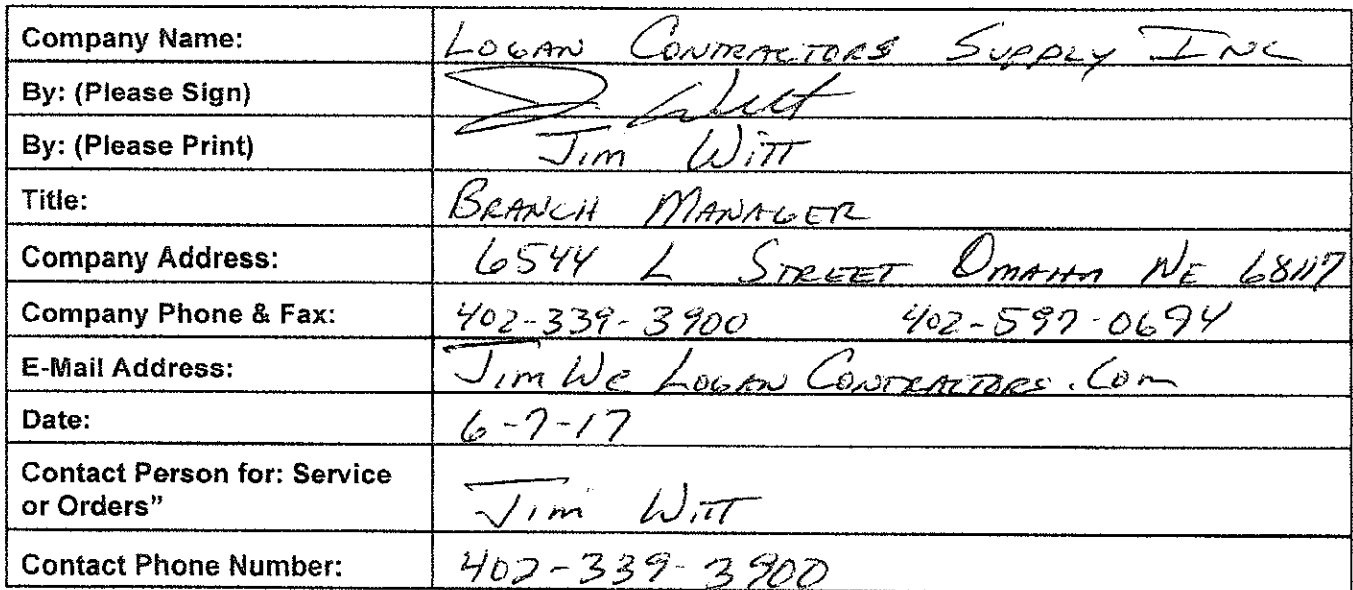 Company Name: LOGAN CONTRACTORS SUPPLY INC
By: (Please Sign) Jim Witt
By: (Please Print) Jim Witt
Title: BRANCH MANAGER
Company Address: 6544 L STREET OMAHA NE 68117
Company Phone & Fax: 402-339-3900 402-597-0694
E-Mail Address: JimW@LoganContractors.Com
Date: 6-7-17
Contact Person for: Service
or Orders” Jim Witt
Contact Phone Number: 402-339-3900